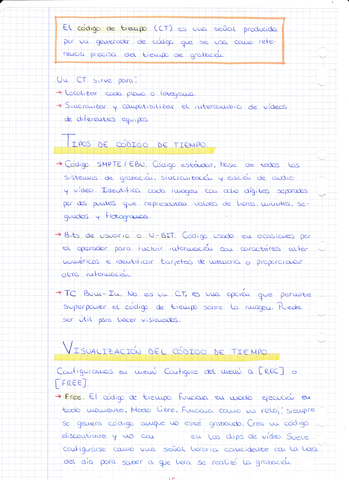 El código de tiempo (CT) es una señal producida
por un generador de código que se usa como refe-
rencia precisa del tiempo de grabación.
Un CT sirve para:
→ Localizar cada plano o fotograma.
→ Sincronizar y compatibilizar el intercambio de vídeos
de diferentes equipos.
TIPOS DE CÓDIGO DE TIEMPO
→ Código SMPTE/EBU. Código estándar, base de todos los
sistemas de grabación, sincronización y edición de audio
y vídeo. Identifica cada imagen con ocho dígitos separados
por dos puntos que representan valores de horas, minutos, se-
gundos y fotogramas.
→ Bits de usuario o U-BIT. Código usado en ocasiones por
el operador para incluir información con caracteres alfa-
numéricos e identificar tarjetas de memoria o proporcionar
otra información.
→ TC Burn-In. No es un CT, es una opción que permite
superponer el código de tiempo sobre la imagen. Puede
ser útil para hacer visionados.
VISUALIZACIÓN DEL CÓDIGO DE TIEMPO
Configuramos en menú Configure del menú a [REC] o
[FREE].
→ Free. El código de tiempo funciona en modo ejecución en
todo momento. Modo Libre. Funciona como un reloj, siempre
se genera código aunque no esté grabando. Crea un código
discontinuo y no con en los clips de vídeo Suele
configurarse como una señal horaria coincidente con la hora
del día para saber a que hora se realizó la grabación.